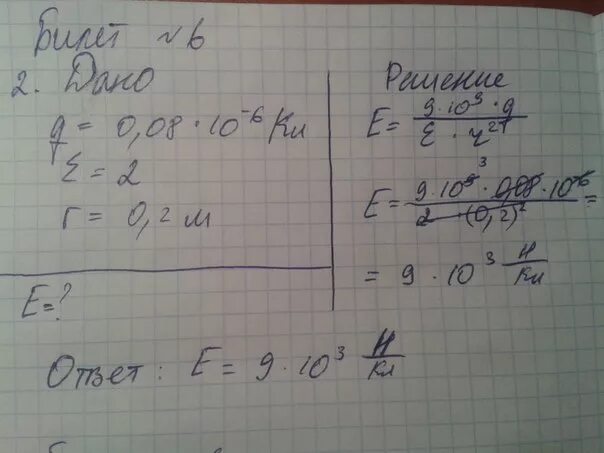 Билет №6
2. Дано
q = 0,08 · 10⁻⁶ Кл
ε = 2
r = 0,2 м
E = ?
Решение
E = 9·10⁹ · q / ε · r²
E = 9·10⁹ · 0,08 · 10⁻⁶ / 2 · (0,2)² =
3
= 9 · 10³ Н/Кл
Ответ: E = 9·10³ Н/Кл